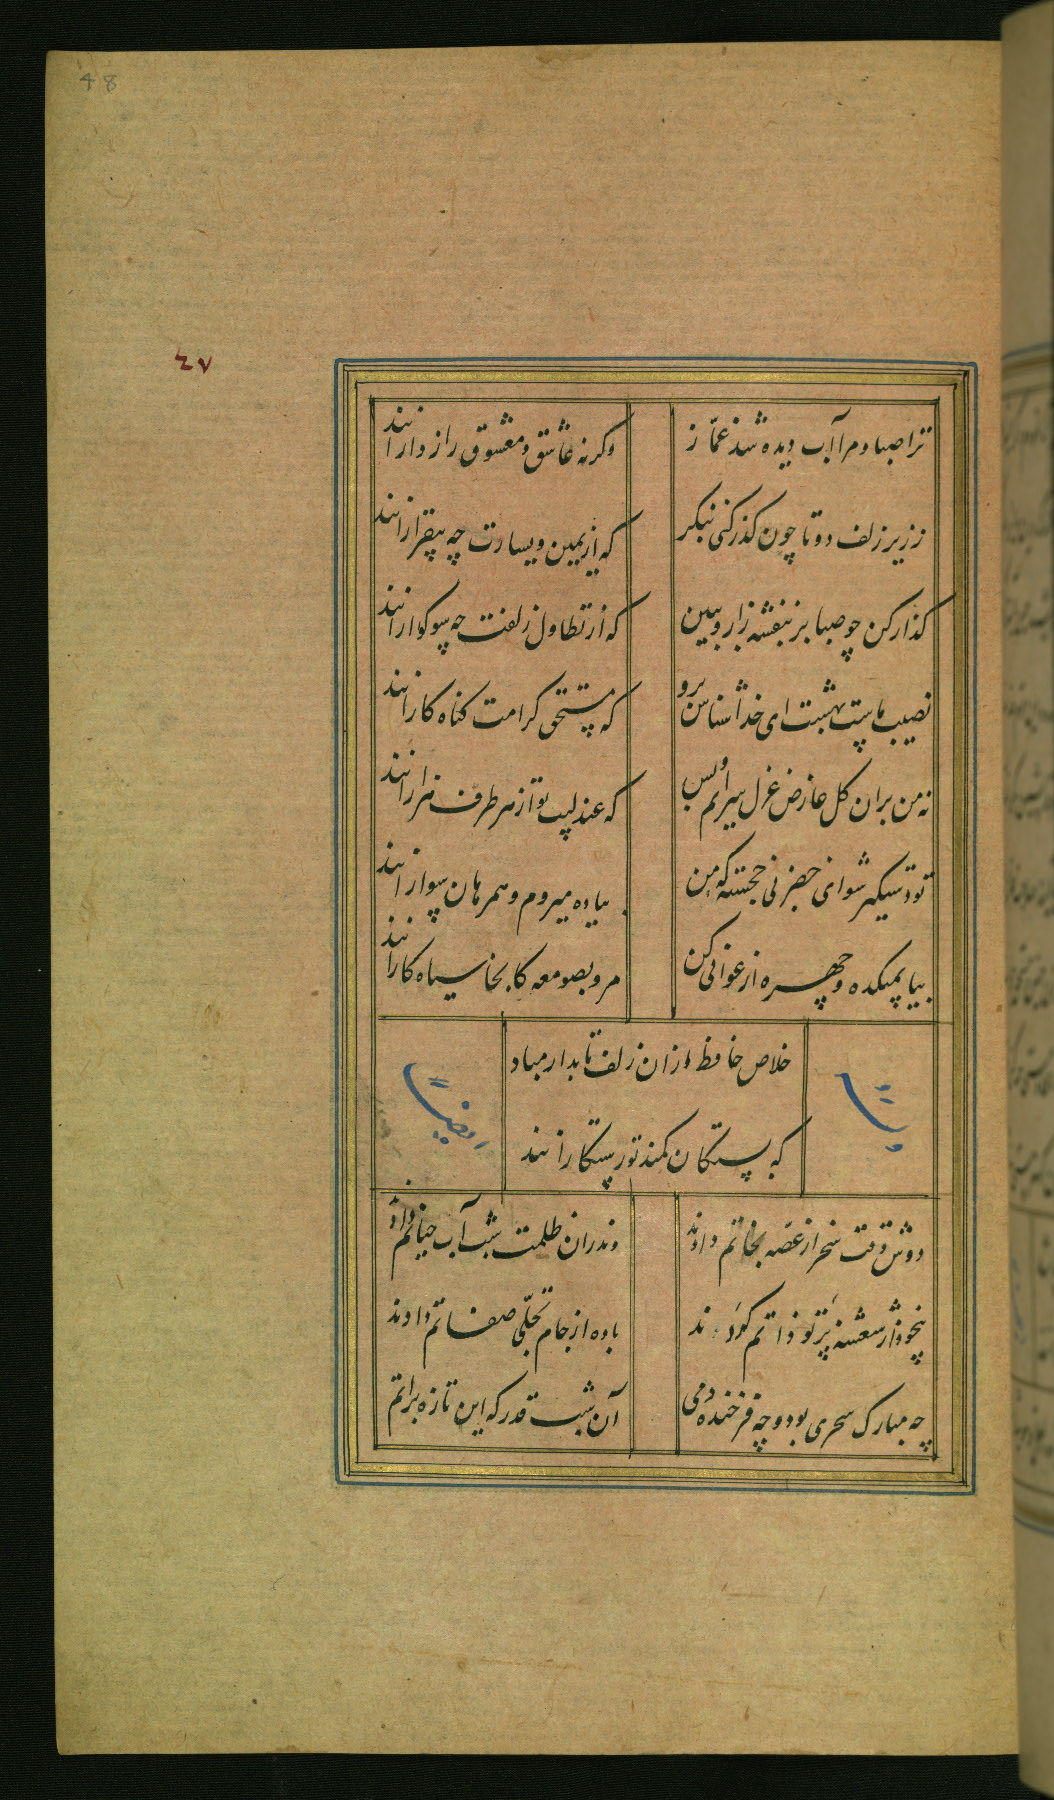 48
٤٧
ترا صبا و مرا آب دیده شد غمّاز
وگرنه عاشق و معشوق رازدارانند
ز زیر زلف دوتا چون گذر کنی بنگر
که از یمین و یسارت چه بیقرارانند
گذار کن چو صبا بر بنفشه زار و ببین
که از تطاول زلفت چه سوکوارانند
نصیب ماست بهشت ای خداشناس برو
که مستحق کرامت کناه کارانند
نه من بران کل عارض غزل سرایم و بس
که عندلیب تو از هر طرف هزارانند
تو دستکیر شو ای خضر پی خجسته که من
پیاده میروم و همرهان سوارانند
بیا بمیکده و چهره ارغوانی کن
مرو بصومعه کانجا سیاه کارانند
خلاص حافظ از ان زلف تابدار مباد
که بستکان کمند تو رستکارانند
وله
ایضا
دوش وقت سحر از غصه نجاتم دادند
وندران ظلمت شب آب حیاتم دادند
بیخود از شعشعه پرتو ذاتم کردند
باده از جام تجلّی صفاتم دادند
چه مبارک سحری بود و چه فرخنده دمی
آن شب قدر که این تازه براتم